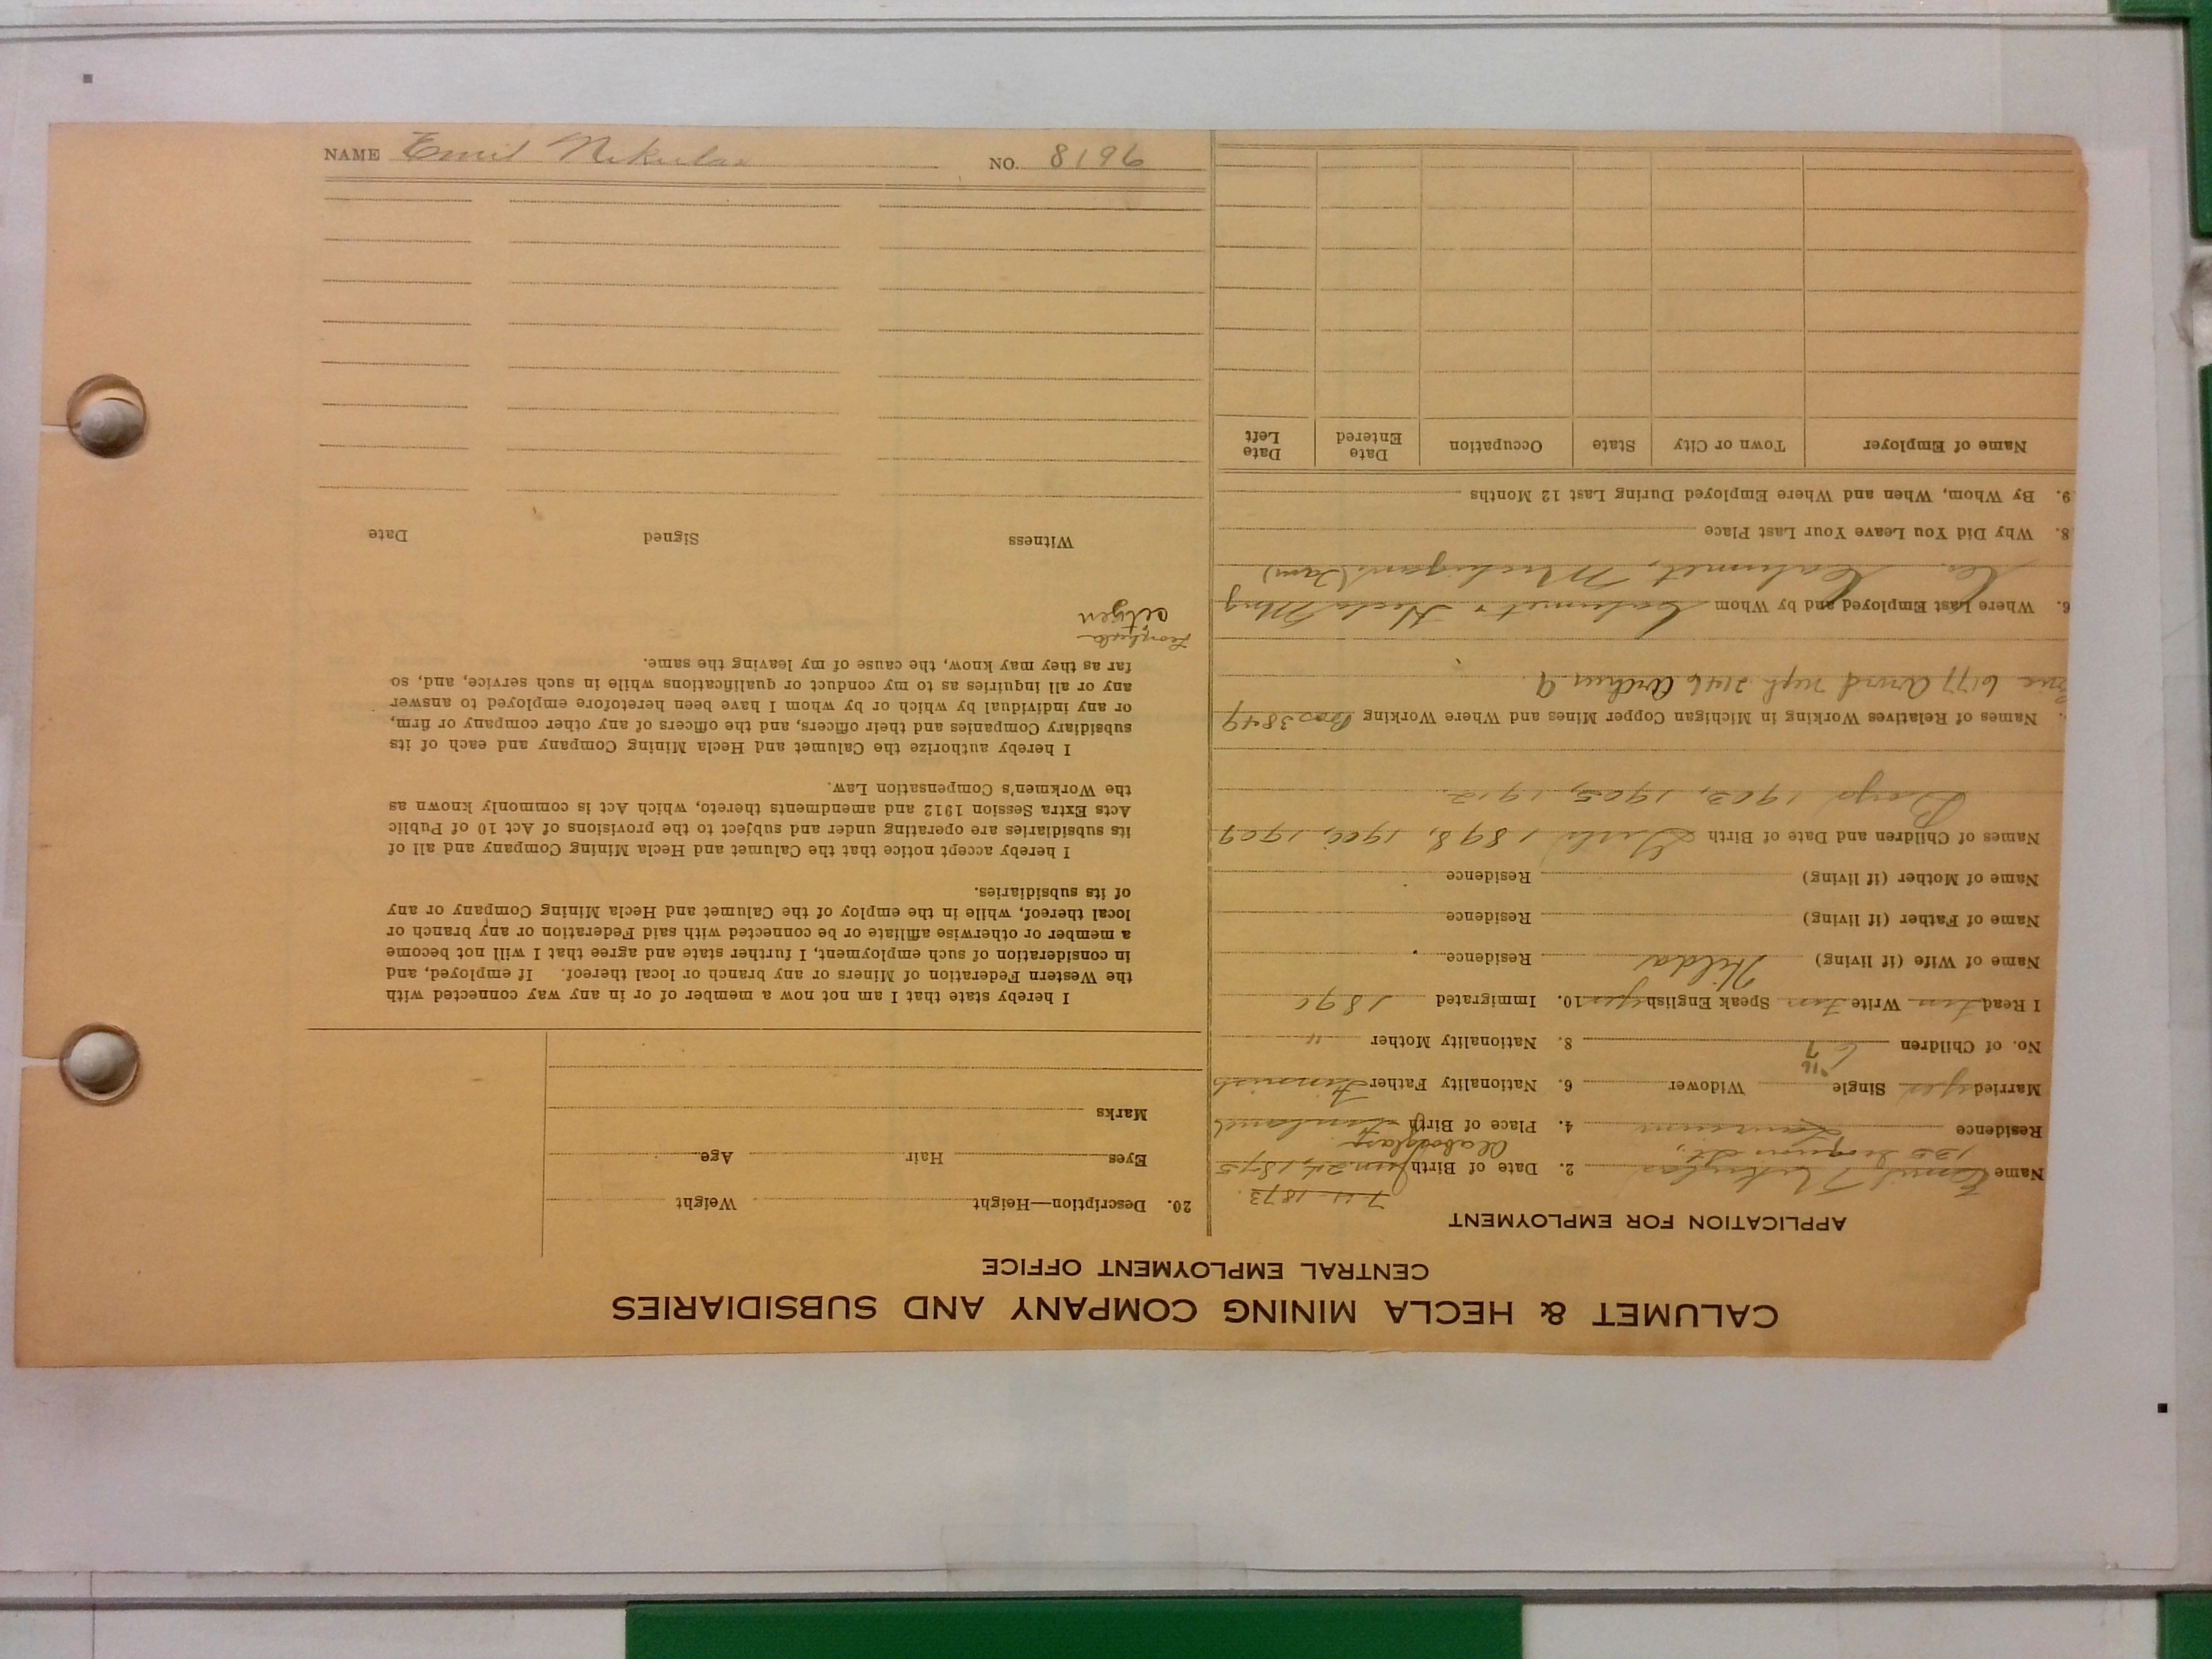 CALUMET & HECLA MINING COMPANY AND SUBSIDIARIES
CENTRAL EMPLOYMENT OFFICE
APPLICATION FOR EMPLOYMENT
7 - 11 - 1873
Name Emil Nikulas 2. Date of Birth 1875
Residence 4. Place of Birth Finland
Married yes Single Widower 6. Nationality Father Finnish
No. of Children 8. Nationality Mother "
I Read Write Speak English yes 10. Immigrated 1890
Name of Wife (if living) Hilda Residence
Name of Father (if living) Residence
Name of Mother (if living) Residence
Names of Children and Date of Birth Girls 1898, 1900, 1909
Boys 1903, 1905, 1912
Names of Relatives Working in Michigan Copper Mines and Where Working Bros 3849
6177 Arvid neph 2146 Arthur 9
6. Where Last Employed and by Whom Calumet & Hecla Mng
Co. Calumet, Michigan
8. Why Did You Leave Your Last Place
9. By Whom, When and Where Employed During Last 12 Months
Name of Employer Town or City State Occupation Date Entered Date Left
20. Description—Height Weight
Eyes Hair Age
Marks
I hereby state that I am not now a member of or in any way connected with
the Western Federation of Miners or any branch or local thereof. If employed, and
in consideration of such employment, I further state and agree that I will not become
a member or otherwise affiliate or be connected with said Federation or any branch or
local thereof, while in the employ of the Calumet and Hecla Mining Company or any
of its subsidiaries.
I hereby accept notice that the Calumet and Hecla Mining Company and all of
its subsidiaries are operating under and subject to the provisions of Act 10 of Public
Acts Extra Session 1912 and amendments thereto, which Act is commonly known as
the Workmen's Compensation Law.
I hereby authorize the Calumet and Hecla Mining Company and each of its
subsidiary Companies and their officers, and the officers of any other company or firm,
or any individual by which or by whom I have been heretofore employed to answer
any or all inquiries as to my conduct or qualifications while in such service, and, so
far as they may know, the cause of my leaving the same.
citizen
Witness Signed Date
NAME Emil Nikulas NO. 8196